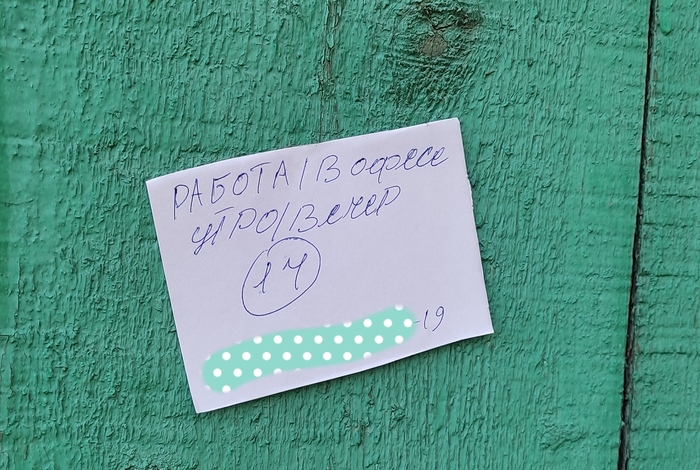 РАБОТА/В офисе
УТРО/ВЕЧЕР
14
-19